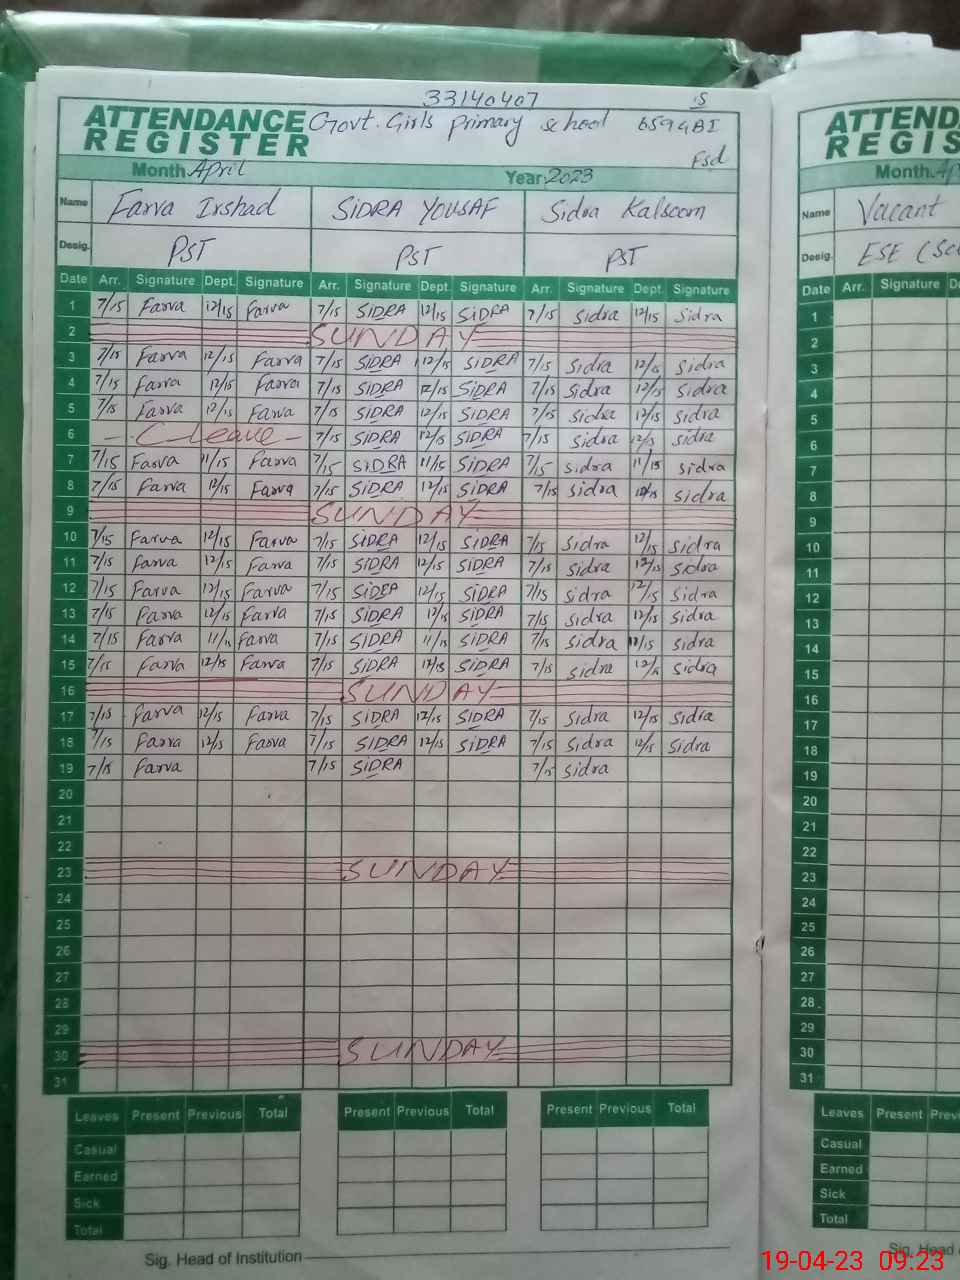 33140407 15
ATTENDANCE Govt. Girls primary school 659GBI
REGISTER Fsd
Month April Year 2023
Name Farva Irshad SIDRA YOUSAF Sidra Kalsoom
Desig. PST PST PST
Date Arr. Signature Dept. Signature Arr. Signature Dept. Signature Arr. Signature Dept. Signature
1 7/15 Farva 12/15 Farva 7/15 SIDRA 12/15 SIDRA 7/15 Sidra 12/15 Sidra
2 SUNDAY
3 7/15 Farva 12/15 Farva 7/15 SIDRA 12/15 SIDRA 7/15 Sidra 12/15 Sidra
4 7/15 Farva 12/15 Farva 7/15 SIDRA 12/15 SIDRA 7/15 Sidra 12/15 Sidra
5 7/15 Farva 12/15 Farva 7/15 SIDRA 12/15 SIDRA 7/15 Sidra 12/15 Sidra
6 - C-Leave - 7/15 SIDRA 12/15 SIDRA 7/15 Sidra 12/15 Sidra
7 7/15 Farva 11/15 Farva 7/15 SIDRA 11/15 SIDRA 7/15 Sidra 11/15 Sidra
8 7/15 Farva 12/15 Farva 7/15 SIDRA 12/15 SIDRA 7/15 Sidra 12/15 Sidra
9 SUNDAY
10 7/15 Farva 12/15 Farva 7/15 SIDRA 12/15 SIDRA 7/15 Sidra 12/15 Sidra
11 7/15 Farva 12/15 Farva 7/15 SIDRA 12/15 SIDRA 7/15 Sidra 12/15 Sidra
12 7/15 Farva 12/15 Farva 7/15 SIDRA 12/15 SIDRA 7/15 Sidra 12/15 Sidra
13 7/15 Farva 12/15 Farva 7/15 SIDRA 12/15 SIDRA 7/15 Sidra 12/15 Sidra
14 7/15 Farva 11/15 Farva 7/15 SIDRA 11/15 SIDRA 7/15 Sidra 11/15 Sidra
15 7/15 Farva 12/15 Farva 7/15 SIDRA 12/15 SIDRA 7/15 Sidra 12/15 Sidra
16 SUNDAY
17 7/15 Farva 12/15 Farva 7/15 SIDRA 12/15 SIDRA 7/15 Sidra 12/15 Sidra
18 7/15 Farva 12/15 Farva 7/15 SIDRA 12/15 SIDRA 7/15 Sidra 12/15 Sidra
19 7/15 Farva 7/15 SIDRA 7/15 Sidra
20
21
22
23 SUNDAY
24
25
26
27
28
29
30 SUNDAY
31
Leaves Present Previous Total Present Previous Total Present Previous Total
Casual
Earned
Sick
Total
Sig. Head of Institution
ATTEND
REGIS
Month Ap
Name Vacant
Desig. ESE (Sci
Date Arr. Signature De
1
2
3
4
5
6
7
8
9
10
11
12
13
14
15
16
17
18
19
20
21
22
23
24
25
26
27
28
29
30
31
Leaves Present Previ
Casual
Earned
Sick
Total
Sig. Head
19-04-23 09:23